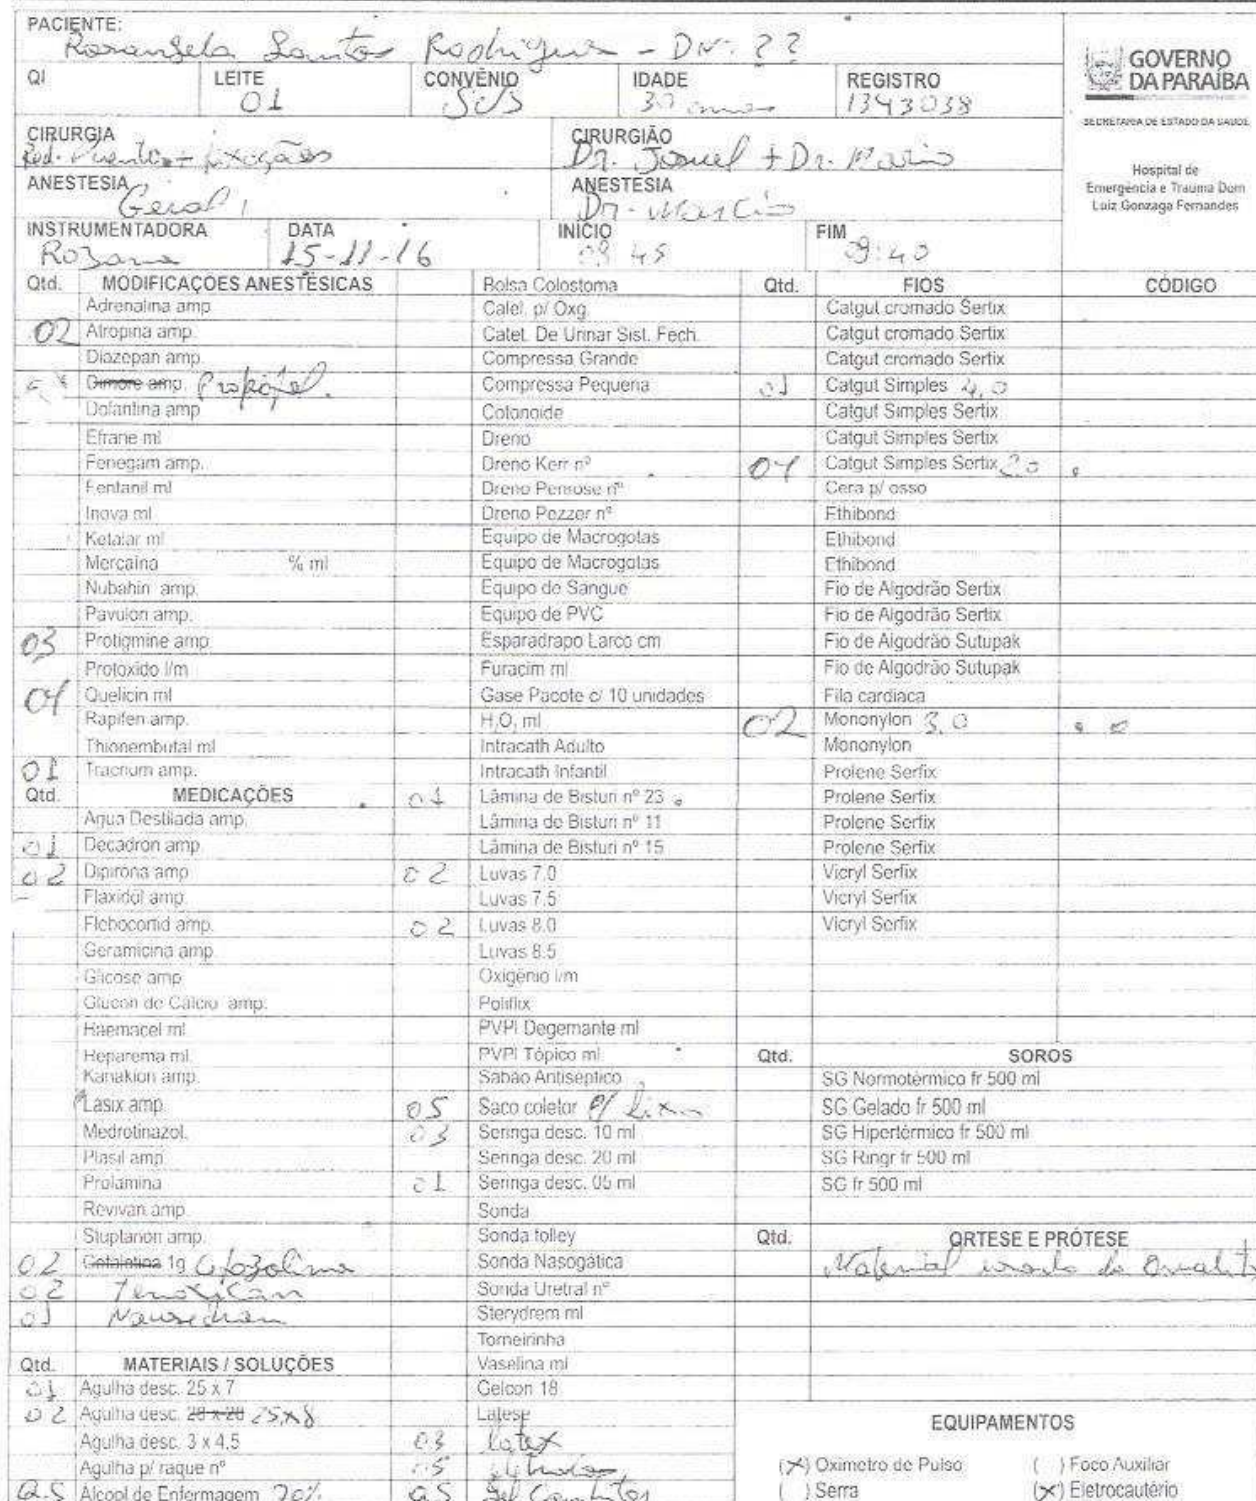 PACIENTE:
Rosangela Santos Rodrigues - DN: ??
QI
LEITE
01
CONVÊNIO
SUS
IDADE
30 anos
REGISTRO
1343038
GOVERNO
DA PARAÍBA
SECRETARIA DE ESTADO DA SAÚDE
Hospital de
Emergência e Trauma Dom
Luiz Gonzaga Fernandes
CIRURGIA
Red. + fixações
CIRURGIÃO
Dr. Josuel + Dr. Mario
ANESTESIA
Geral
ANESTESIA
Dr. Marcio
INSTRUMENTADORA
Rozana
DATA
15-11-16
INÍCIO
08 45
FIM
09:40
Qtd. MODIFICAÇÕES ANESTÉSICAS
Adrenalina amp
02 Atropina amp.
Diazepan amp.
Dimore amp. Propofol.
Dolantina amp
Efrane ml
Fenegam amp.
Fentanil ml
Inova ml
Ketalar ml
Mercaina % ml
Nubahin amp.
Pavulon amp.
03 Protigmine amp.
Protoxido l/m
04 Quelicin ml
Rapifen amp.
Thionembutal ml
01 Tracrium amp.
Qtd. MEDICAÇÕES
Agua Destilada amp.
01 Decadron amp.
02 Dipirona amp
Flaxidol amp.
Flebocortid amp.
Geramicina amp
Glicose amp
Glucon de Cálcio amp.
Haemacel ml
Heparema ml.
Kanakion amp.
Lasix amp.
Medrotinazol.
Plasil amp
Prolamina
Revivan amp.
Stuptanon amp.
02 Cefalotina 1g Cefazolina
02 Tenoxican
01 Nausedron
Qtd. MATERIAIS / SOLUÇÕES
01 Agulha desc. 25 x 7
02 Agulha desc. 28 x 28 25x8
Agulha desc. 3 x 4,5
Agulha p/ raque nº
Q.S Alcool de Enfermagem 70%
Bolsa Colostoma
Catet. p/ Oxg.
Catet. De Urinar Sist. Fech.
Compressa Grande
Compressa Pequena
Colonoide
Dreno
Dreno Kerr nº
Dreno Penrose nº
Dreno Pezzer nº
Equipo de Macrogotas
Equipo de Macrogotas
Equipo de Sangue
Equipo de PVC
Esparadrapo Larco cm
Furacim ml
Gase Pacote c/ 10 unidades
H₂O₂ ml
Intracath Adulto
Intracath Infantil
01 Lâmina de Bisturi nº 23
Lâmina de Bisturi nº 11
Lâmina de Bisturi nº 15
02 Luvas 7.0
Luvas 7.5
02 Luvas 8.0
Luvas 8.5
Oxigênio l/m
Poliflix
PVPI Degemante ml
PVPI Tópico ml
Sabão Antiseptico
05 Saco coletor p/ lixo
03 Seringa desc. 10 ml
Seringa desc. 20 ml
01 Seringa desc. 05 ml
Sonda
Sonda folley
Sonda Nasogática
Sonda Uretral nº
Sterydrem ml
Torneirinha
Vaselina ml
Gelcon 18
Latese
03 latex
05 eletrodos
Q.S Gel Condutor
Qtd. FIOS CÓDIGO
Catgut cromado Sertix
Catgut cromado Sertix
Catgut cromado Sertix
01 Catgut Simples 4,0
Catgut Simples Sertix
Catgut Simples Sertix
04 Catgut Simples Sertix 2 0
Cera p/ osso
Ethibond
Ethibond
Ethibond
Fio de Algodrão Sertix
Fio de Algodrão Sertix
Fio de Algodrão Sutupak
Fio de Algodrão Sutupak
Fila cardiaca
02 Mononylon 3,0
Mononylon
Prolene Serfix
Prolene Serfix
Prolene Serfix
Prolene Serfix
Vicryl Serfix
Vicryl Serfix
Vicryl Serfix
Qtd. SOROS
SG Normotérmico fr 500 ml
SG Gelado fr 500 ml
SG Hipertérmico fr 500 ml
SG Ringr fr 500 ml
SG fr 500 ml
Qtd. ORTESE E PRÓTESE
Material usado da
EQUIPAMENTOS
(X) Oximetro de Pulso ( ) Foco Auxiliar
( ) Serra (X) Eletrocautério